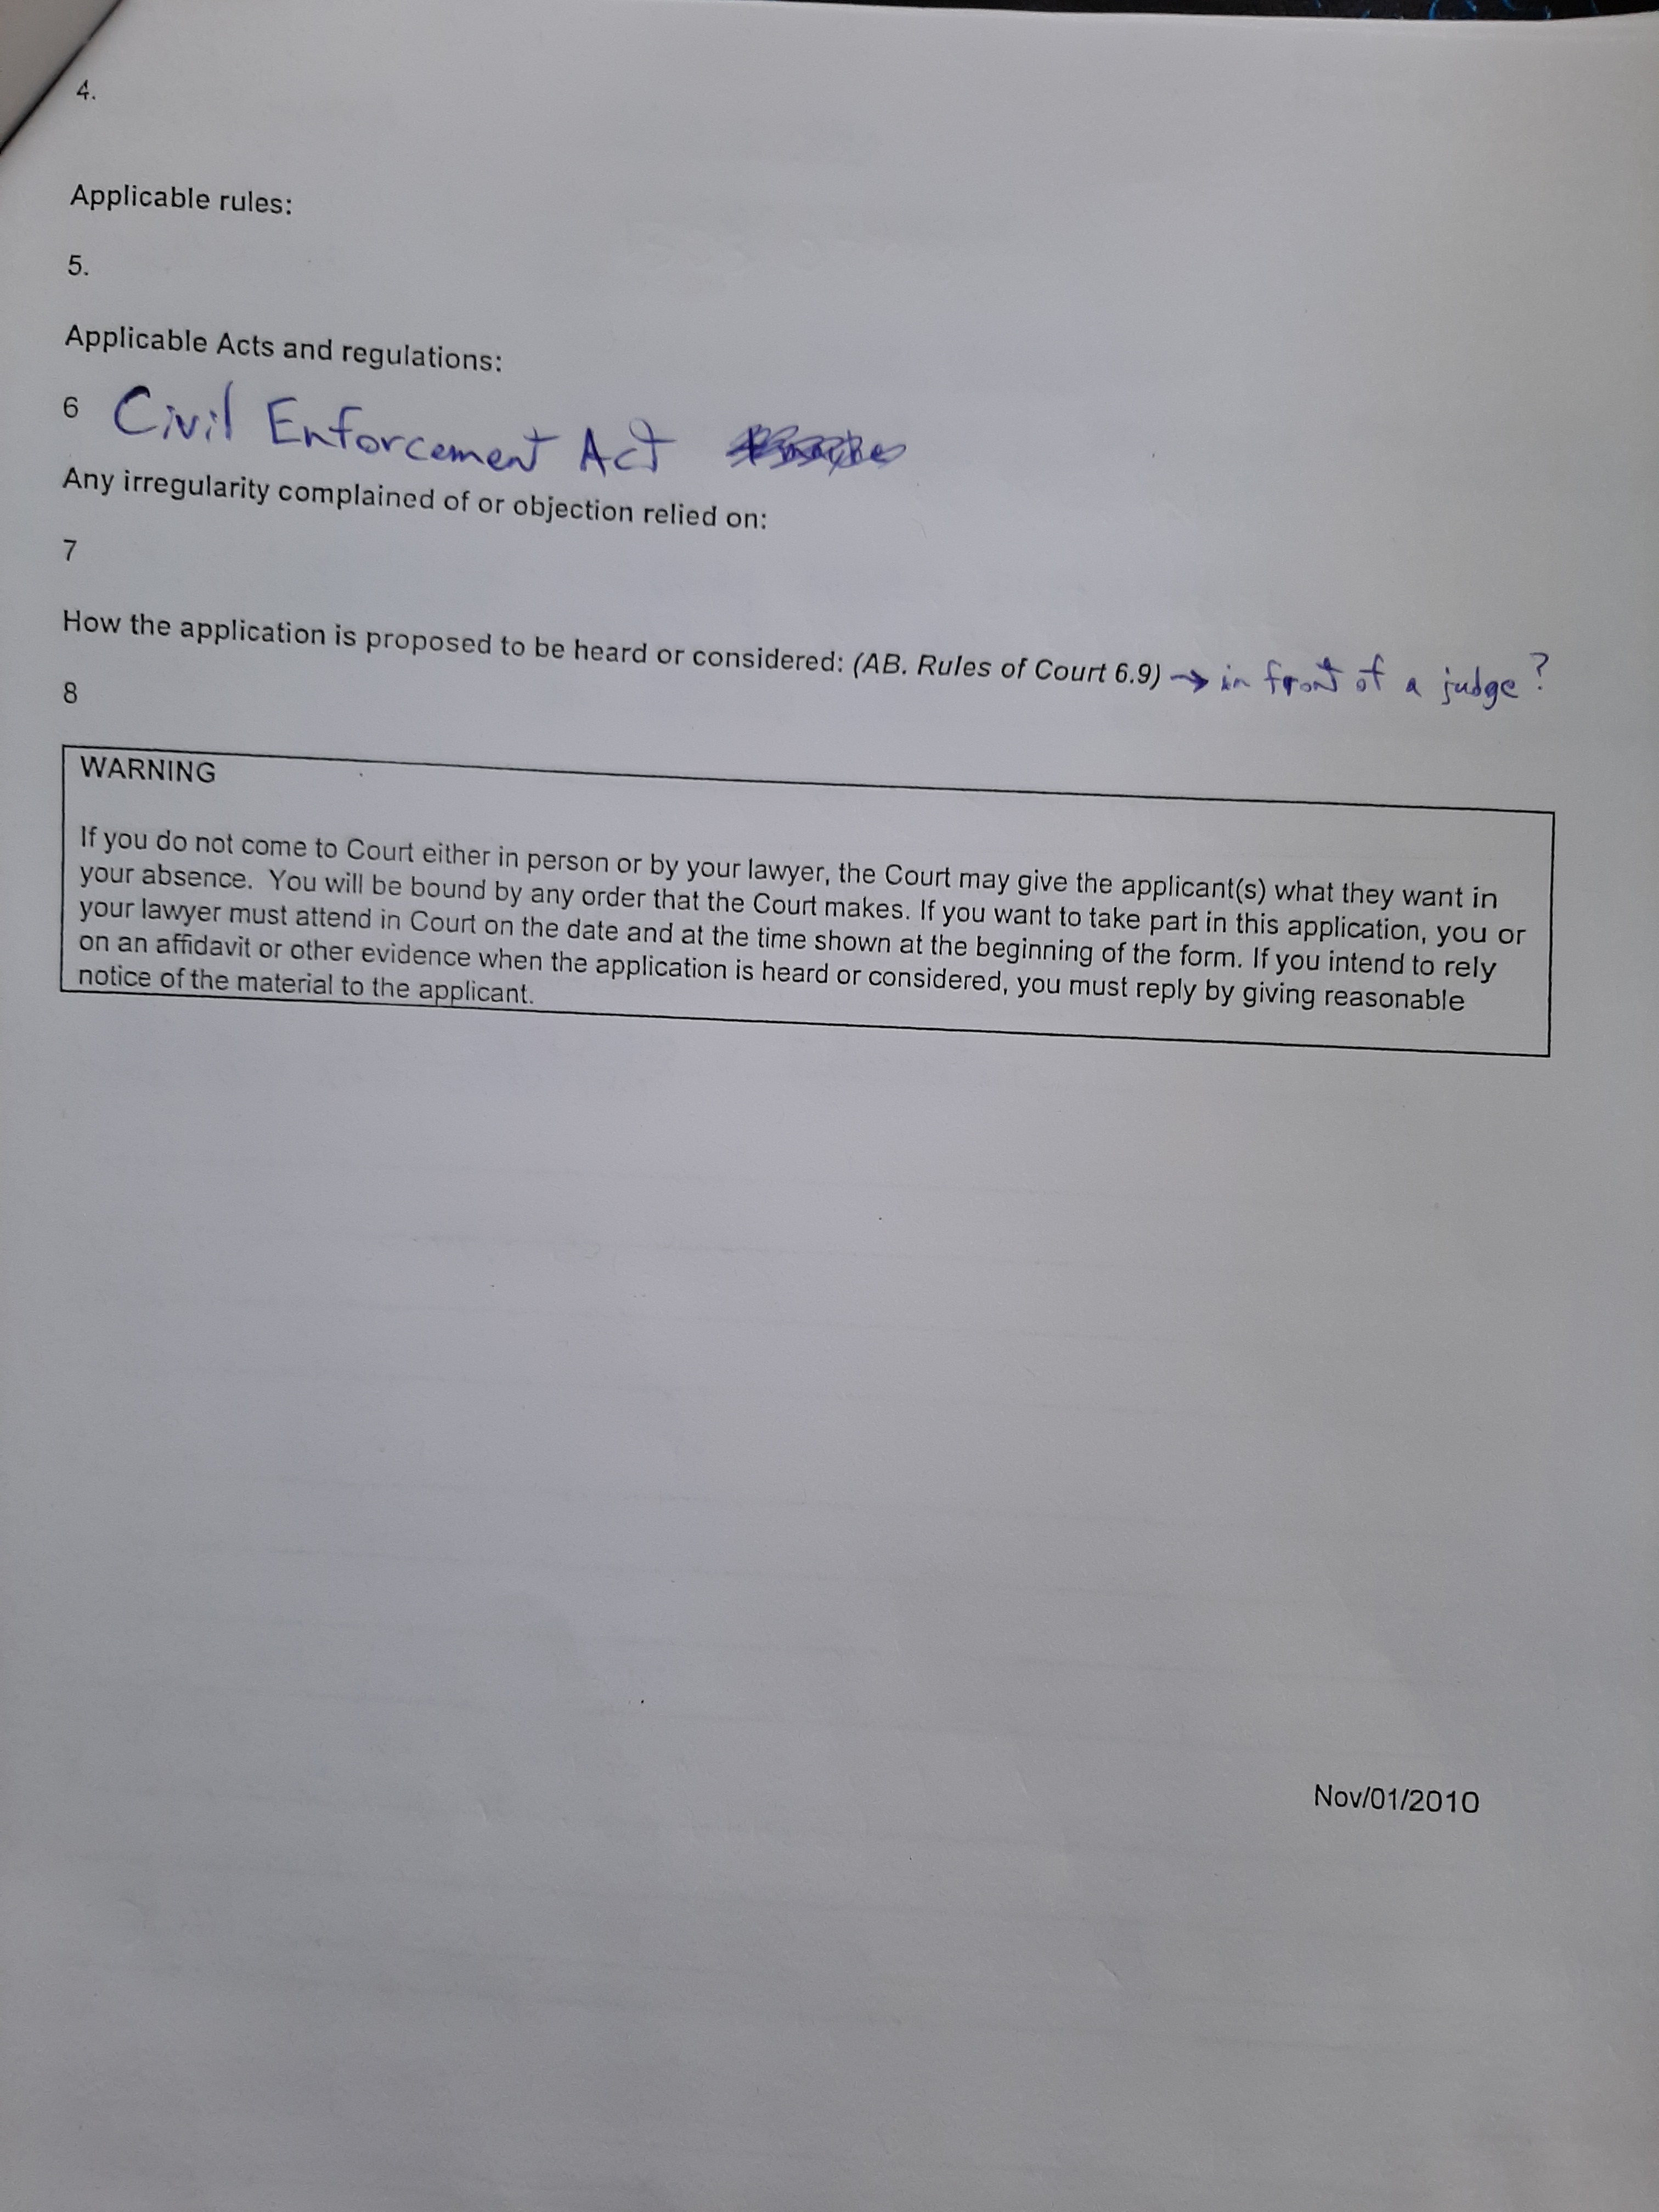 4.
Applicable rules:
5.
Applicable Acts and regulations:
6 Civil Enforcement Act
Any irregularity complained of or objection relied on:
7
How the application is proposed to be heard or considered: (AB. Rules of Court 6.9) → in front of a judge?
8
WARNING
If you do not come to Court either in person or by your lawyer, the Court may give the applicant(s) what they want in
your absence. You will be bound by any order that the Court makes. If you want to take part in this application, you or
your lawyer must attend in Court on the date and at the time shown at the beginning of the form. If you intend to rely
on an affidavit or other evidence when the application is heard or considered, you must reply by giving reasonable
notice of the material to the applicant.
Nov/01/2010